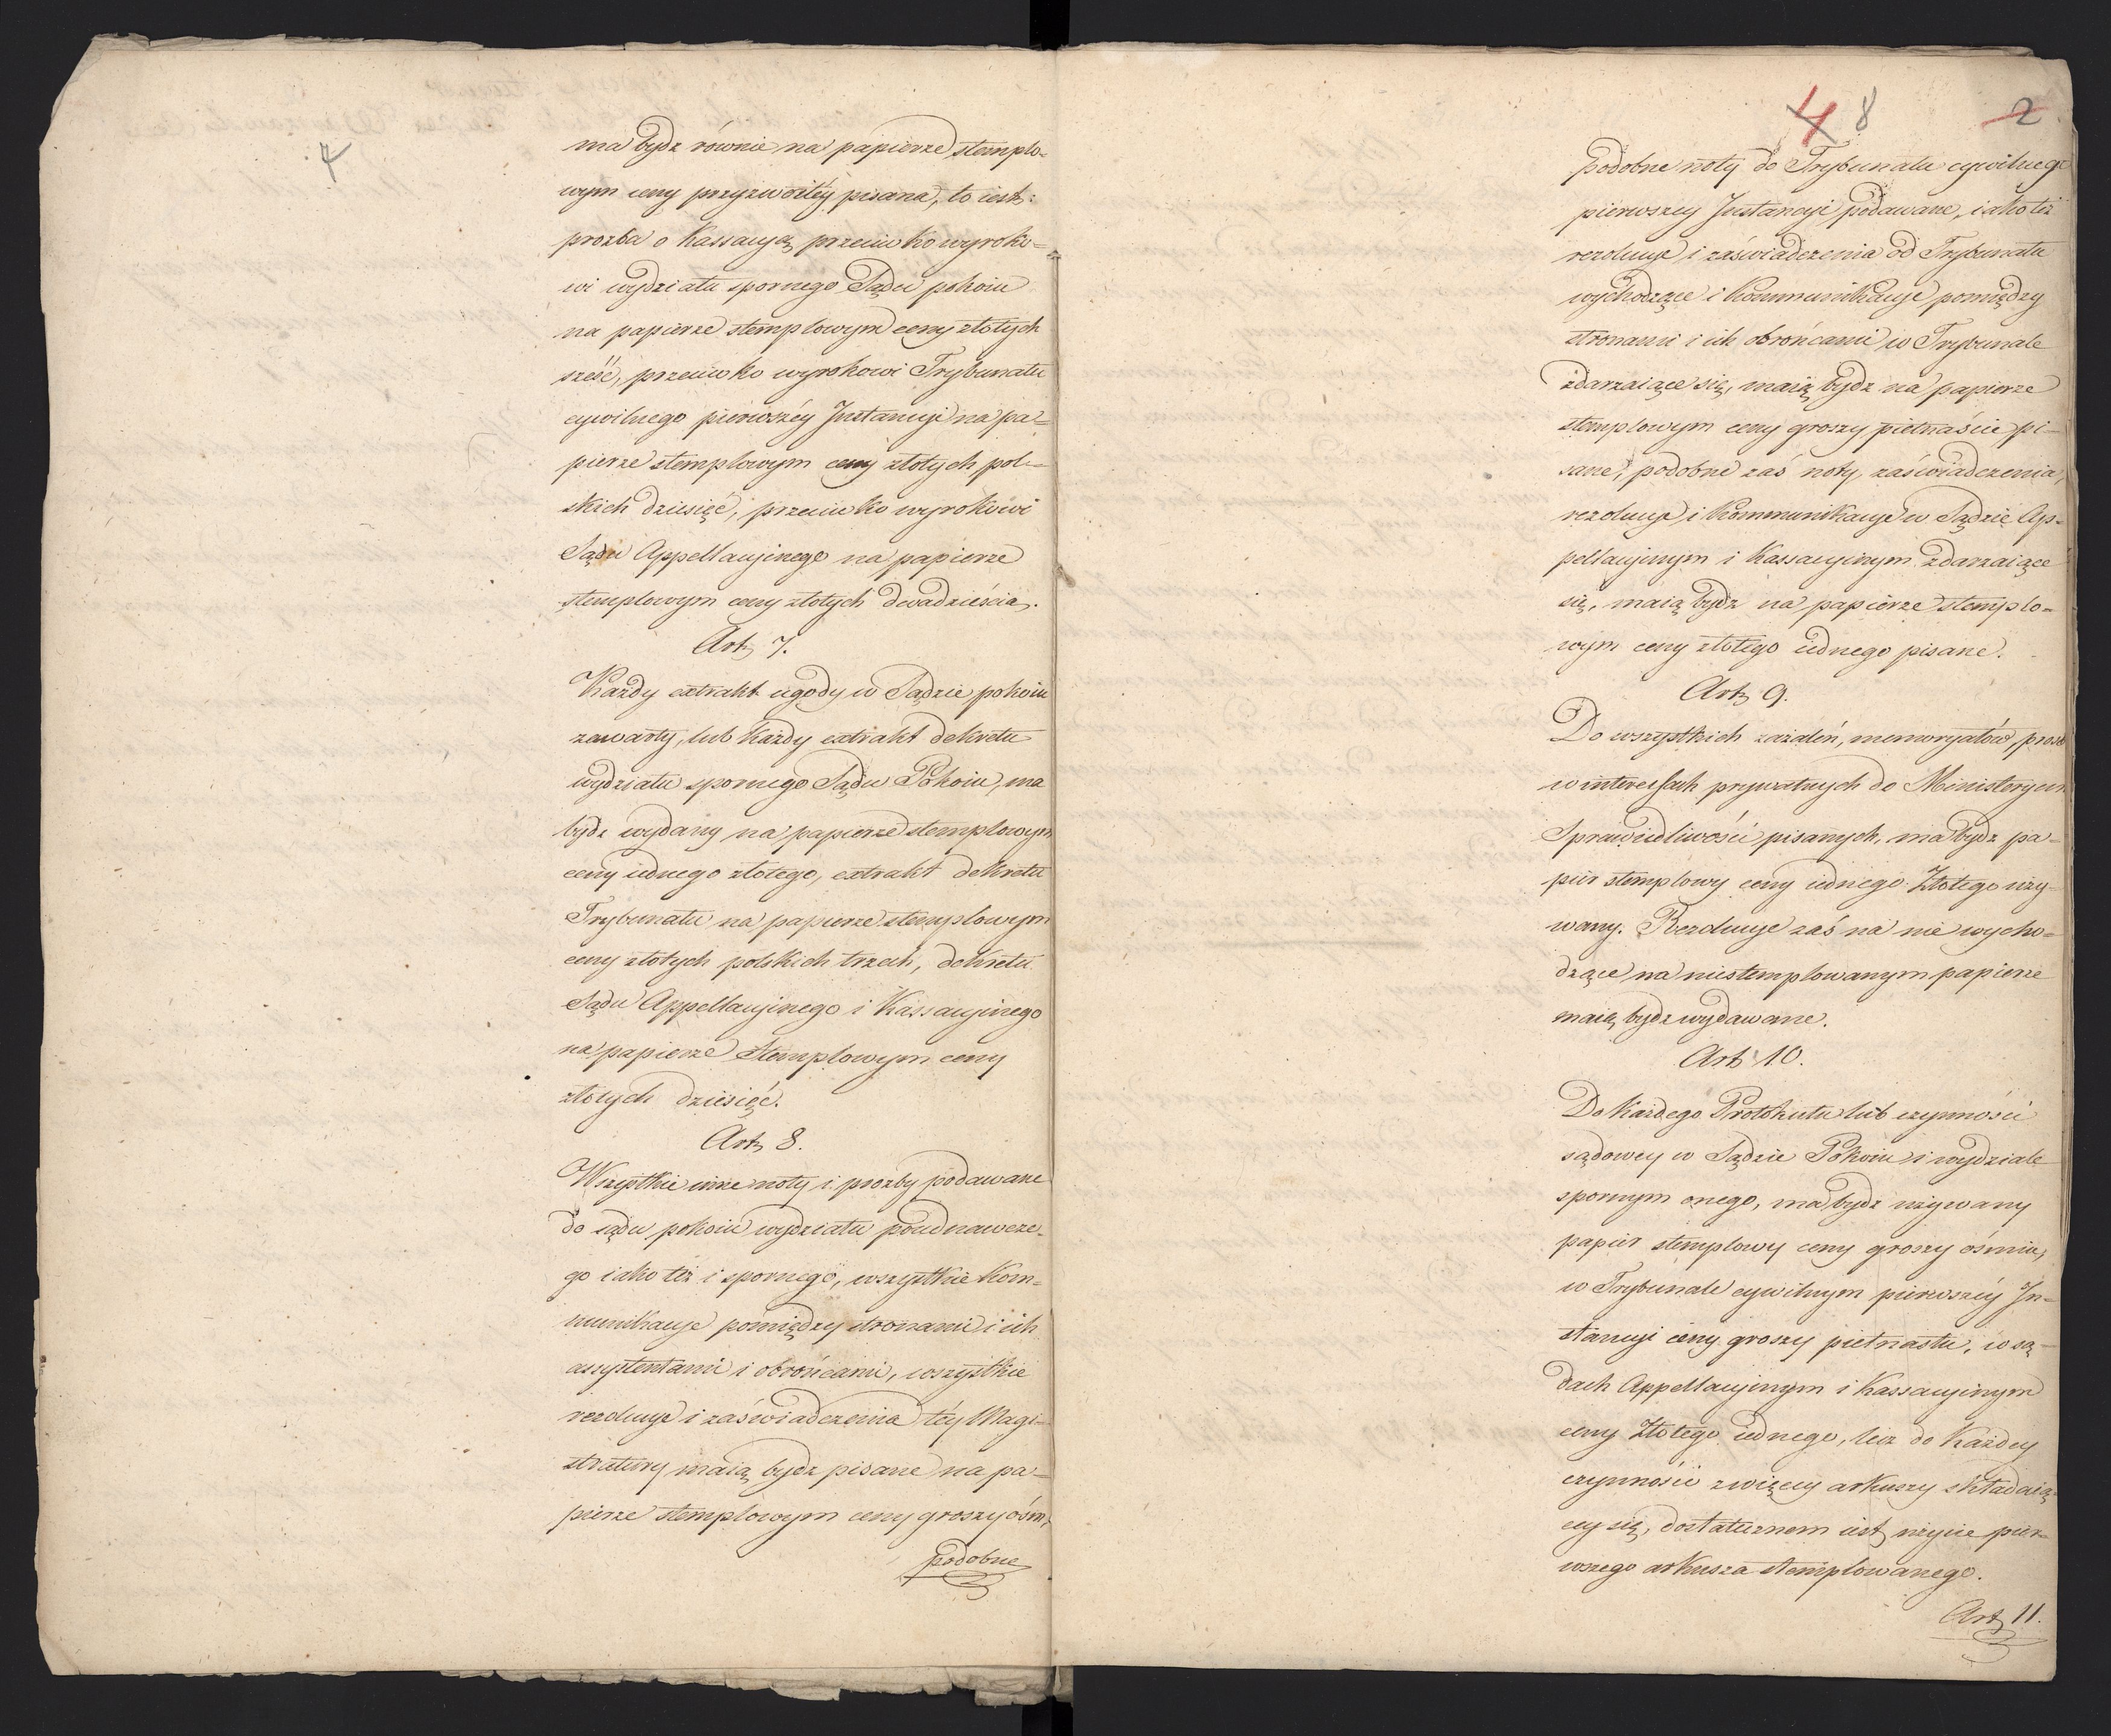 4
ma bydź równie na papierze stemplo=
wym ceny przyzwoitéy pisana, to iest:
prozba o Kassacyą przeciwko wyroko=
wi wydziału spornego Sądu pokoiu
na papierze stemplowym ceny złotych
sześć, przeciwko wyrokowi Trybunału
cywilnego pierwszéy Jnstancyi na pa=
pierze stemplowym ceny złotych pol=
skich dziesięć, przeciwko wyrokowi
Sądu Appellacyinego na papierze
stemplowym ceny złotych dwadzieścia.
Art. 7.
Każdy extrakt ugody w Sądzie pokoiu
zawarty, lub Każdy extrakt dekretu
wydziału spornego Sądu Pokoiu, ma
bydź wydany na papierze stemplowym
ceny iednego złotego, extrakt dekretu
Trybunału na papierze stemplowym
ceny złotych polskich trzech, dekretu
Sądu Appellacyinego i Kassacyinego
na papierze Stemplowym ceny
złotych dziesięć.
Art. 8.
Wszystkie inne noty i prozby podawane
do sądu pokoiu wydziału poiednawcze=
go iako też i spornego, wszystkie Kom=
munikacye pomiędzy stronami i ich
assystentami i obrońcami, wszystkie
rezolucye i zaświadczenia téy Magi=
stratury maią bydź pisane na pa=
pierze stemplowym ceny groszy ośm,
podobne
4 8 2
podobne noty do Trybunału cywilnego
pierwszey Jnstancyi podawane, iako też
rezolucye i zaświadczenia od Trybunału
wychodzące i Kommunikacye pomiędzy
stronami i ich obrońcami w Trybunale
zdarzaiące się, maią bydź na papierze
stemplowym ceny groszy pietnaście pi=
sane, podobne zaś noty, zaświadczenia,
rezolucye i Kommunikacye w Sądzie Ap=
pellacyinym i Kassacyinym zdarzaiące
się, maią bydź na papierze stemplo=
wym ceny złotego iednego pisane.
Art. 9.
Do wszystkich zażaleń, memoryałów, proźb
w interessach prywatnych do Ministeryum
Sprawiedliwości pisanych, ma bydź pa=
pier stemplowy ceny iednego Złotego uży=
wany. Rezolucye zaś na nie wycho=
dzące na niestemplowanym papierze
maią bydź wydawane.
Art. 10.
Do Każdego Protokułu lub czynności
sądowey w Sądzie Pokoiu i wydziale
spornym onego, ma bydź używany
papier stemplowy ceny groszy ośmiu,
w Trybunale cywilnym pierwszéy Jn=
stancyi ceny groszy pietnastu, w są=
dach Appellacyinym i Kassacyinym
ceny Złotego iednego, lecz do Każdey
czynności z więcey arkuszy składaią=
cey się, dostatecznem iest użycie pier=
wszego arkusza stemplowanego.
Art. 11.